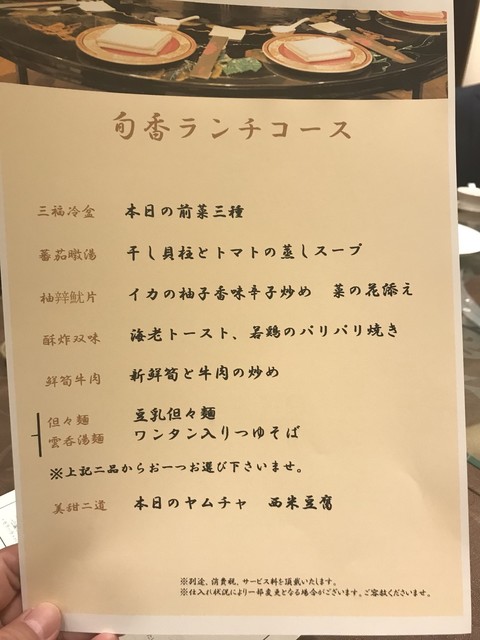 旬香ランチコース
三福冷盆 本日の前菜三種
蕃茄暾湯 干し貝柱とトマトの蒸しスープ
柚辣魷片 イカの柚子香味辛子炒め 菜の花添え
酥炸双味 海老トースト、若鶏のパリパリ焼き
鮮筍牛肉 新鮮筍と牛肉の炒め
但々麺 豆乳但々麺
雲呑湯麺 ワンタン入りつゆそば
※上記二品からお一つお選び下さいませ。
美甜二道 本日のヤムチャ 西米豆腐
※別途、消費税、サービス料を頂戴いたします。
※仕入れ状況により一部変更となる場合がございます。ご容赦くださいませ。